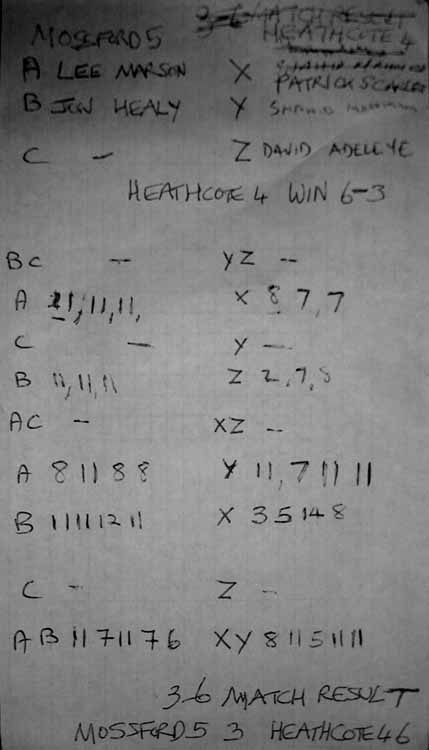 3-6 MATCH RESULT
MOSSFORD 5 HEATHCOTE 4
A LEE MARSON X PATRICK SCARLETT
B JON HEALY Y
C - Z DAVID ADELEYE
HEATHCOTE 4 WIN 6-3
BC - YZ --
A 11,11,11, X 8 7,7
C - Y -
B 11,11,11 Z 2,7,8
AC - XZ --
A 8 11 8 8 Y 11,7 11 11
B 11 11 12 11 X 3 5 14 8
C - Z -
A B 11 7 11 7 6 X Y 8 11 5 11 11
3-6 MATCH RESULT
MOSSFORD 5 3 HEATHCOTE 4 6